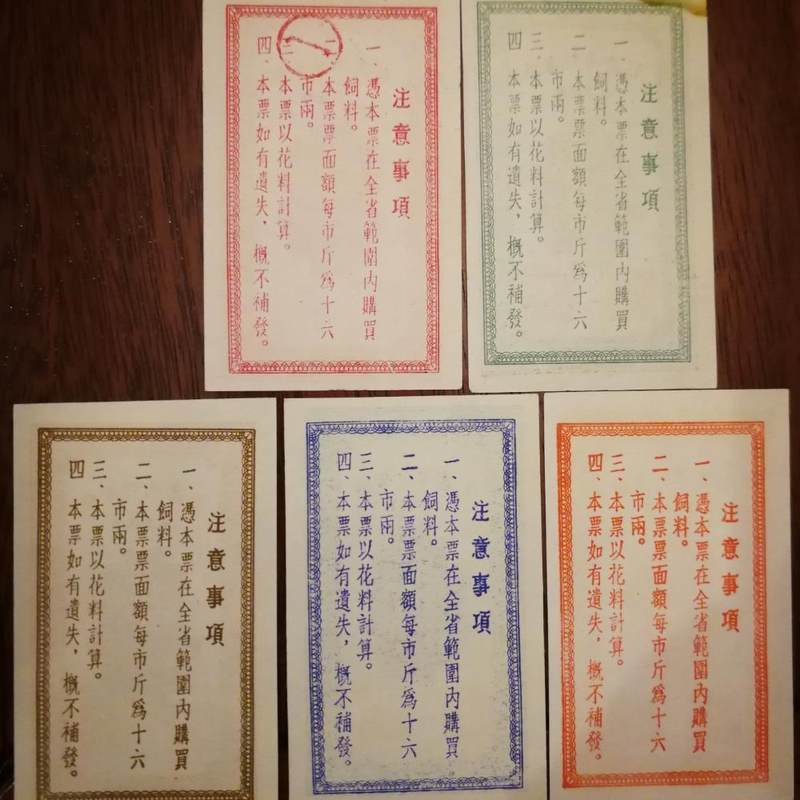 注意事項
一、憑本票在全省範圍內購買
飼料。
二、本票票面額每市斤爲十六
市兩。
三、本票以花料計算。
四、本票如有遺失，概不補發。
注意事項
一、憑本票在全省範圍內購買
飼料。
二、本票票面額每市斤爲十六
市兩。
三、本票以花料計算。
四、本票如有遺失，概不補發。
注意事項
一、憑本票在全省範圍內購買
飼料。
二、本票票面額每市斤爲十六
市兩。
三、本票以花料計算。
四、本票如有遺失，概不補發。
注意事項
一、憑本票在全省範圍內購買
飼料。
二、本票票面額每市斤爲十六
市兩。
三、本票以花料計算。
四、本票如有遺失，概不補發。
注意事項
一、憑本票在全省範圍內購買
飼料。
二、本票票面額每市斤爲十六
市兩。
三、本票以花料計算。
四、本票如有遺失，概不補發。